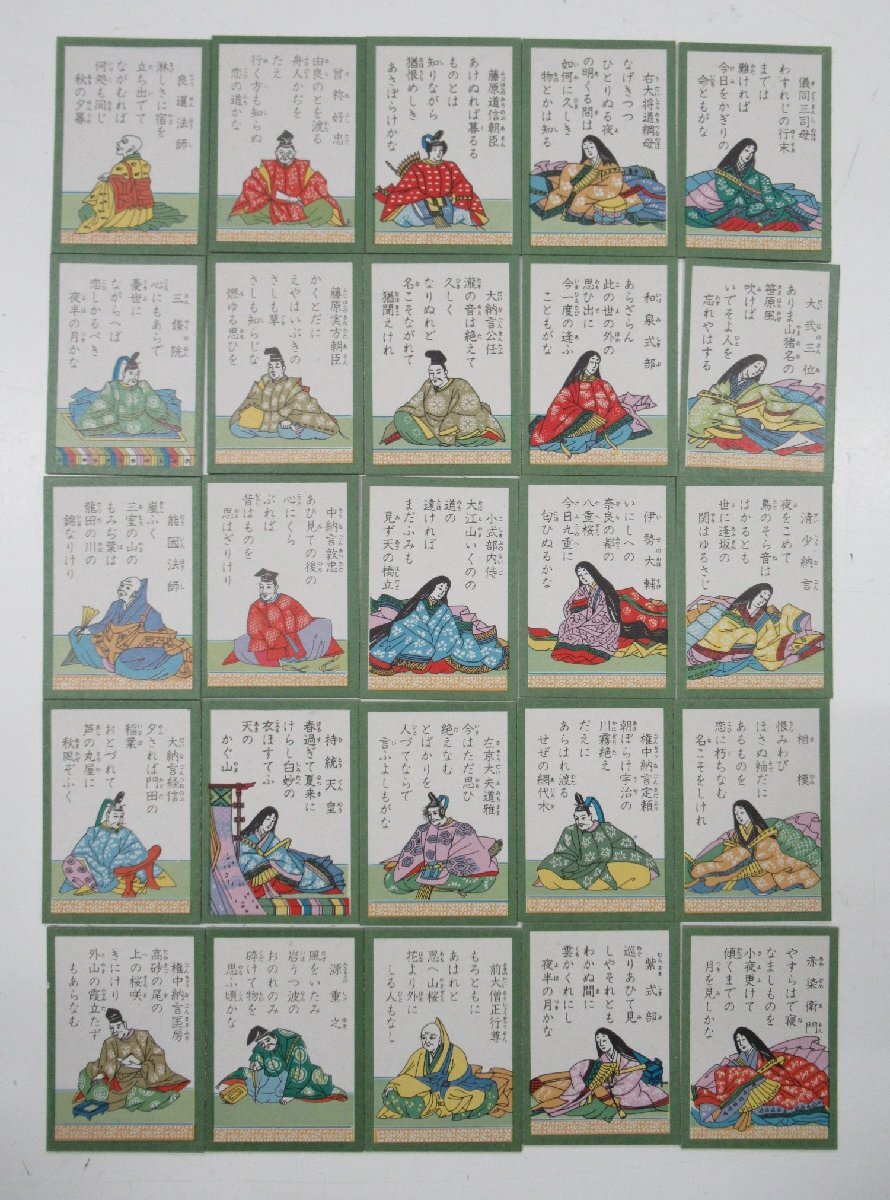 儀同三司母
わすれじの行末
までは
難ければ
今日をかぎりの
命ともがな
右大将道綱母
なげきつつ
ひとりぬる夜
の明くる間は
如何に久しき
物とかは知る
藤原道信朝臣
あけぬれば暮るる
ものとは
知りながら
猶恨めしき
あさぼらけかな
曽祢好忠
由良のとを渡る
舟人かぢを
たえ
行く方も知らぬ
恋の道かな
良暹法師
淋しさに宿を
立ち出でて
ながむれば
何処も同じ
秋の夕暮
大弐三位
ありま山猪名の
笹原風
吹けば
いでそよ人を
忘れやはする
和泉式部
あらざらん
此の世の外の
思ひ出に
今一度の逢ふ
こともがな
大納言公任
瀧の音は絶えて
久しく
なりぬれど
名こそながれて
猶聞えけれ
藤原実方朝臣
かくとだに
えやはいぶきの
さしも草
さしも知らじな
燃ゆる思ひを
三條院
心にもあらで
憂世に
ながらへば
恋しかるべき
夜半の月かな
清少納言
夜をこめて
鳥のそら音は
はかるとも
世に逢坂の
関はゆるさじ
伊勢大輔
いにしへの
奈良の都の
八重桜
今日九重に
匂ひぬるかな
小式部内侍
大江山いくのの
道の
遠ければ
まだふみも
見ず天の橋立
中納言敦忠
あひ見ての後の
心にくら
ぶれば
昔はものを
思はざりけり
能因法師
嵐ふく
三室の山の
もみぢ葉は
龍田の川の
錦なりけり
相模
恨みわび
ほさぬ袖だに
あるものを
恋に朽ちなむ
名こそをしけれ
権中納言定頼
朝ぼらけ宇治の
川霧絶え
だえに
あらはれ渡る
せぜの網代木
左京大夫道雅
今はただ思ひ
絶えなむ
とばかりを
人づてならで
言ふよしもがな
持統天皇
春過ぎて夏来に
けらし白妙の
衣ほすてふ
天の
かぐ山
大納言経信
夕されば門田の
稲葉
おとづれて
芦の丸屋に
秋風ぞふく
赤染衛門
やすらはで寝
なましものを
小夜更けて
傾くまでの
月を見しかな
紫式部
巡りあひて見
しやそれとも
わかぬ間に
雲がくれにし
夜半の月かな
前大僧正行尊
もろともに
あはれと
思へ山桜
花より外に
しる人もなし
源重之
風をいたみ
岩うつ波の
おのれのみ
砕けて物を
思ふ頃かな
権中納言匡房
高砂の尾の
上の桜咲
きにけり
外山の霞立たず
もあらなむ